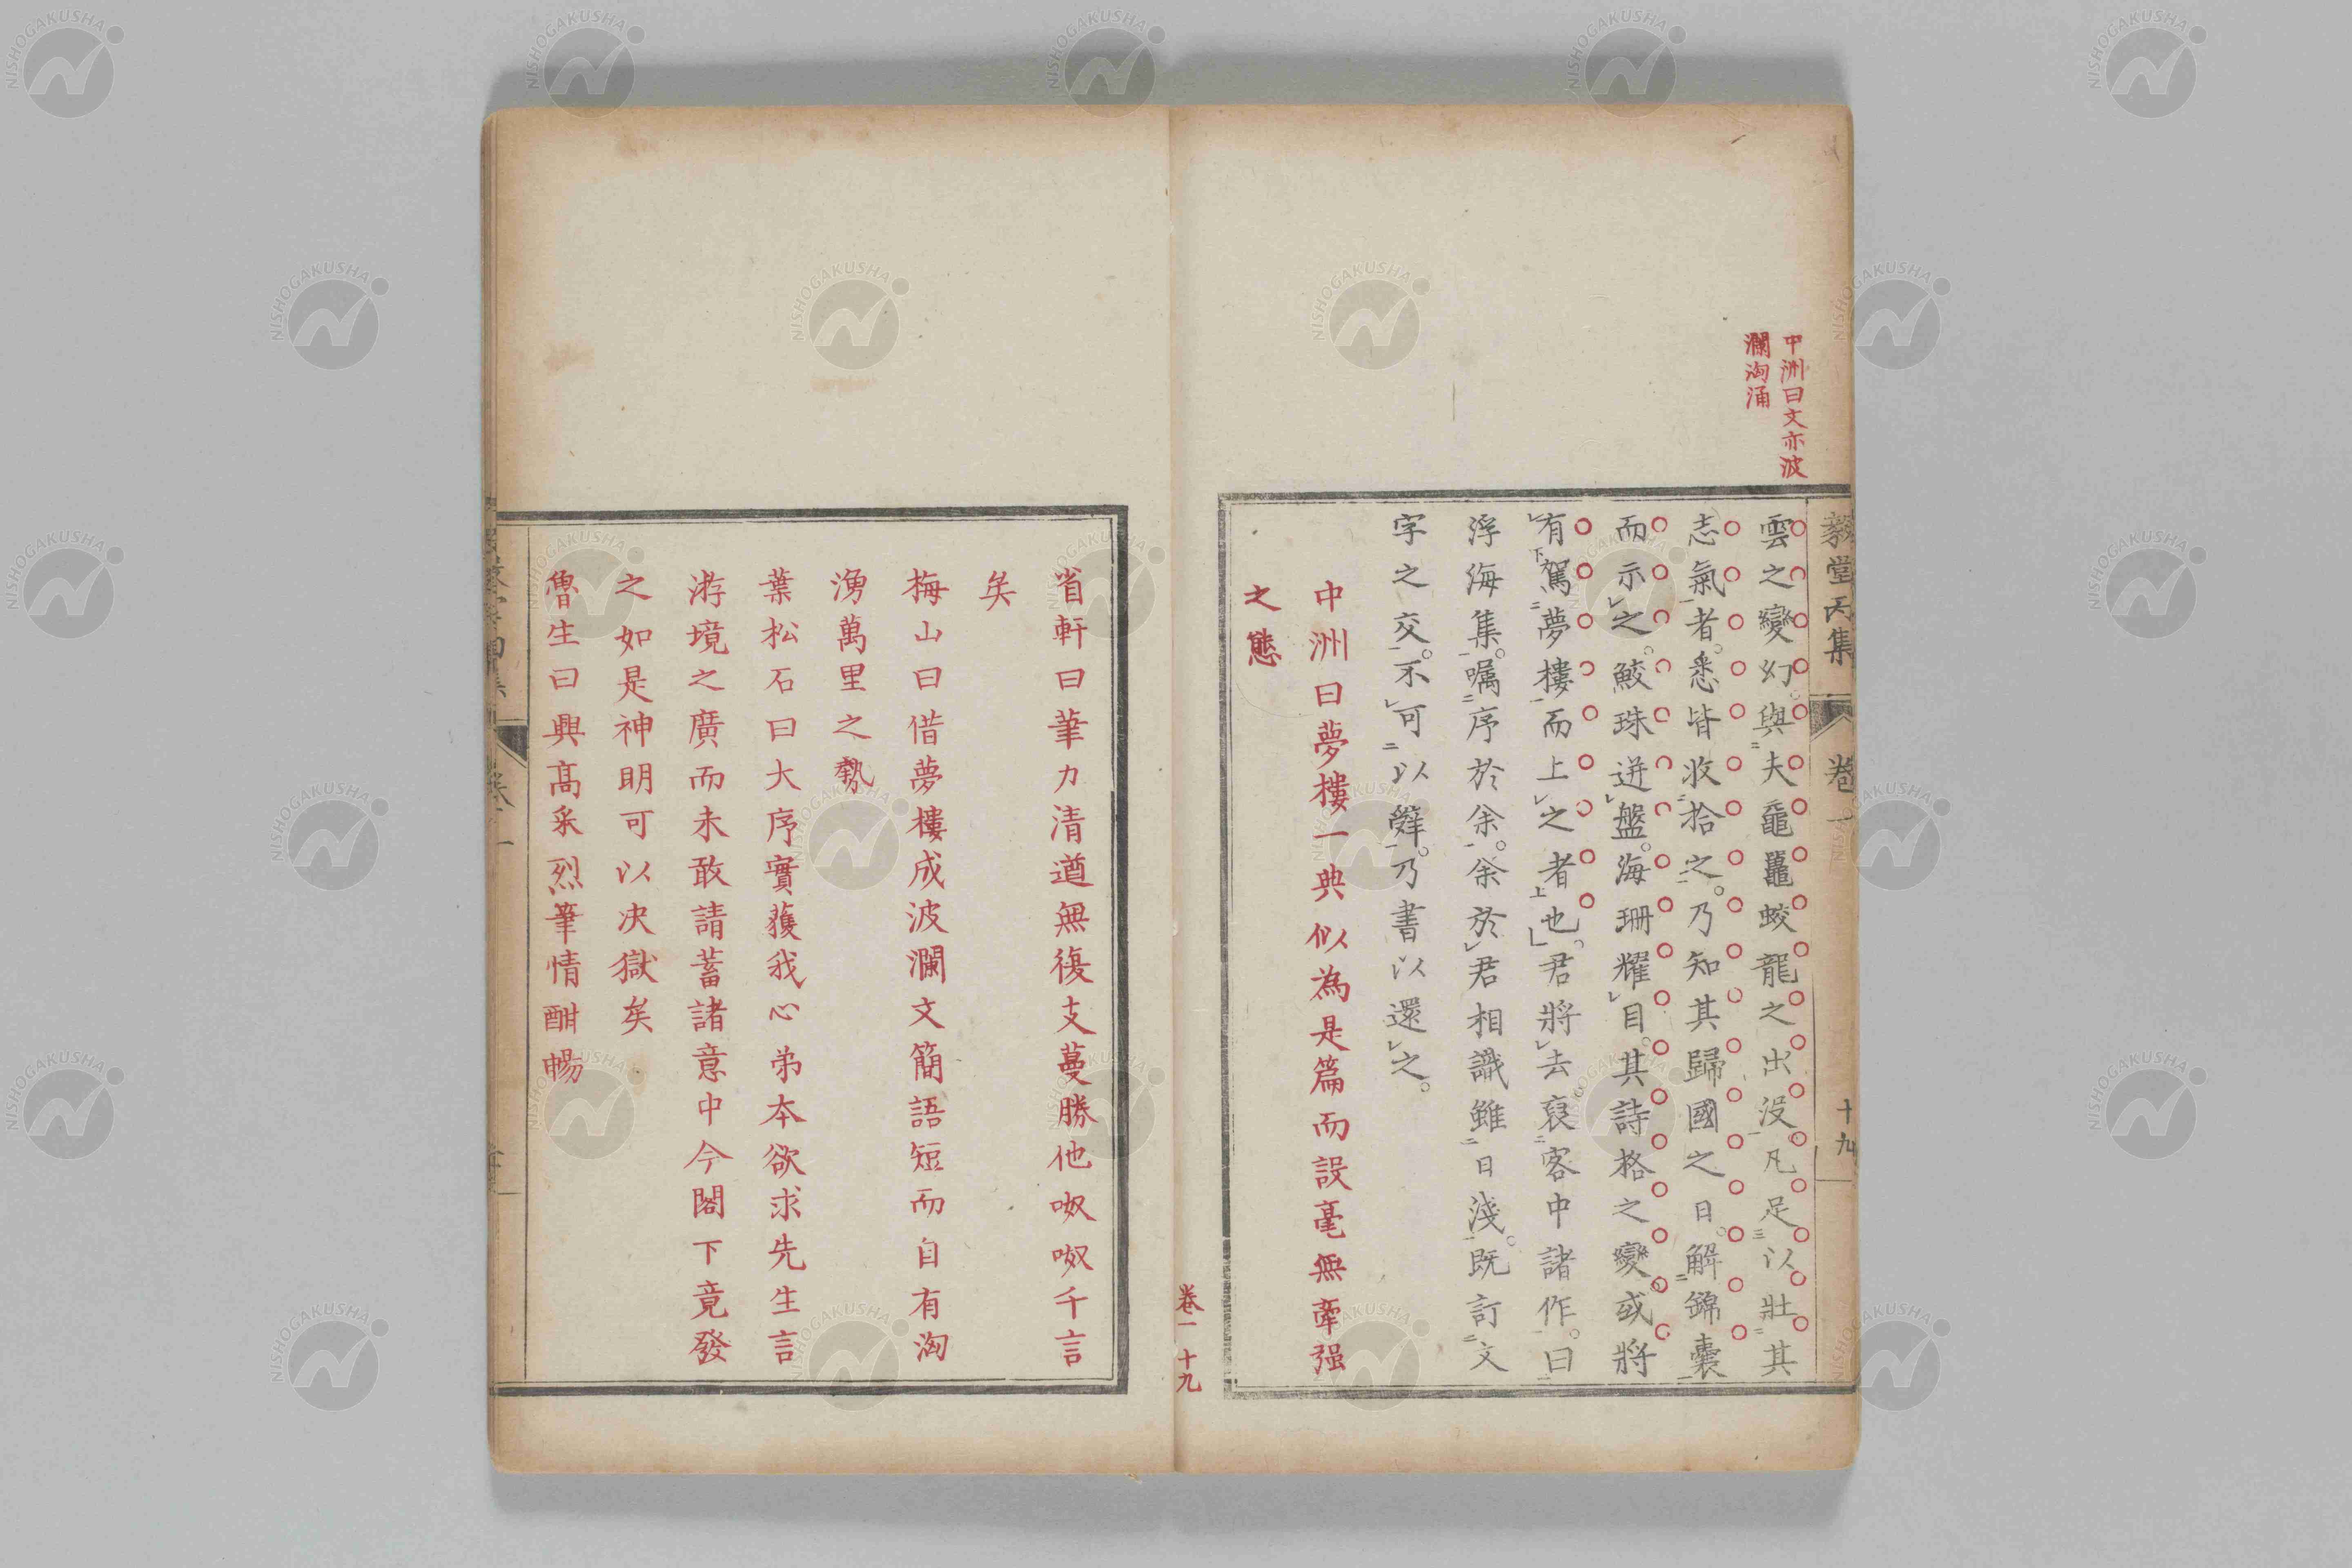 毅堂丙集 卷一 十九
中洲曰文亦波
瀾洶涌
雲之變幻與夫黿鼉蛟龍之出沒凡足以壯其
志氣者悉皆收拾之乃知其歸國之日解錦囊
而示之鮫珠迸盤海珊耀目其詩格之變或將
有駕夢樓而上之者也君將去裒客中諸作曰
浮海集囑序於余余於君相識雖日淺既訂文
字之交不可以辭乃書以還之
中洲曰夢樓一典似為是篇而設毫無牽强
之態
卷一 十九
省軒曰筆力清遒無復支蔓勝他呶呶千言
矣
梅山曰借夢樓成波瀾文簡語短而自有洶
湧萬里之勢
葉松石曰大序實獲我心弟本欲求先生言
游境之廣而未敢請蓄諸意中今閣下竟發
之如是神明可以決獄矣
魯生曰興高采烈筆情酣暢
NISHOGAKUSHA